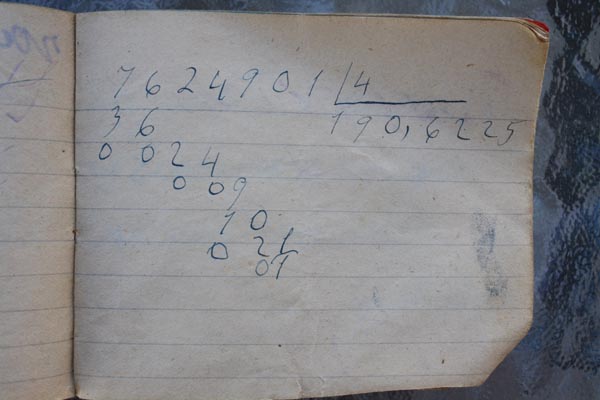 7624901 | 4
36 190,6225
0 024
0 09
10
0 21
01